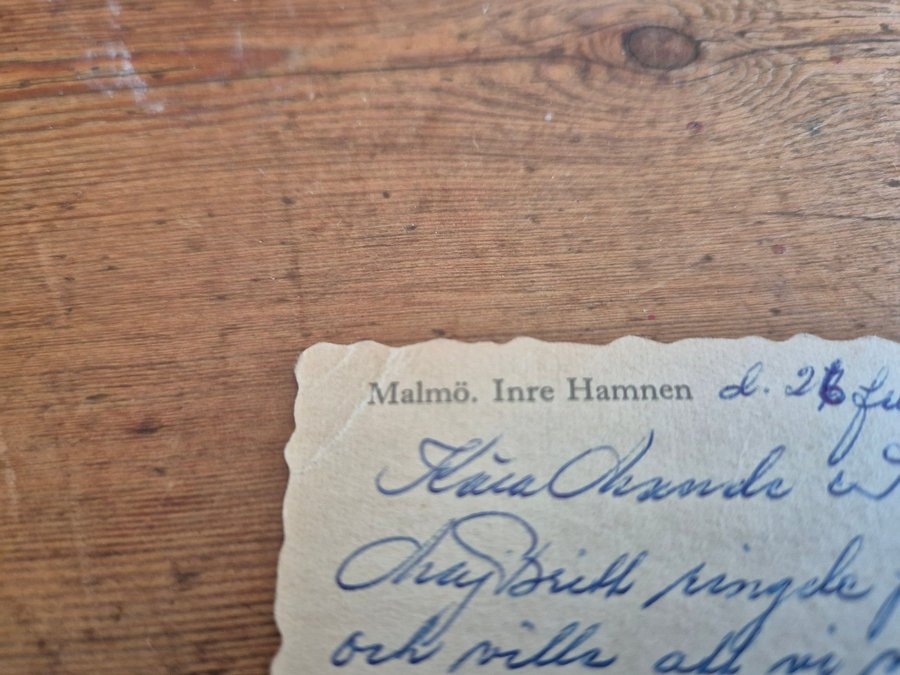 Malmö. Inre Hamnen d. 26
Kära
Maj Britt ringde
och ville att vi